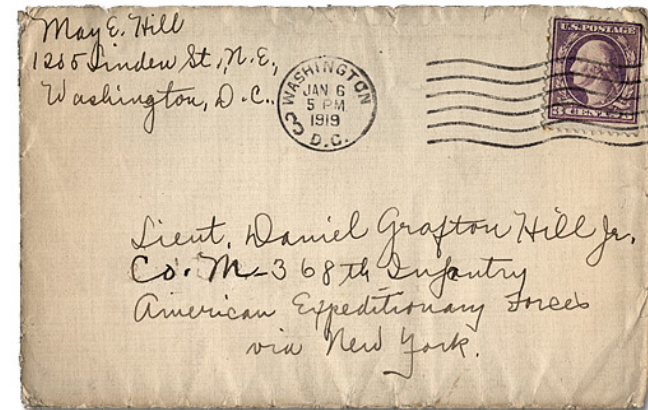 May E. Hill
1206 Linden St., N.E.,
Washington, D.C.
WASHINGTON
JAN 6
5 PM
1919
D.C.
3
U.S. POSTAGE
3 CENTS 3
Lieut. Daniel Grafton Hill Jr.
Co. M-368th Infantry
American Expeditionary Forces
via New York.